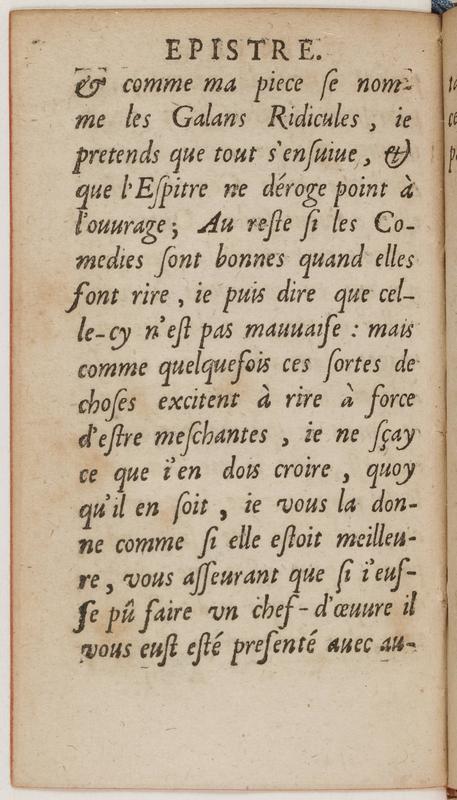 EPISTRE.
& comme ma piece ſe nom-
me les Galans Ridicules, ie
pretends que tout s'enſuiue, &
que l'Eſpitre ne déroge point à
l'ouurage; Au reſte ſi les Co-
medies ſont bonnes quand elles
font rire, ie puis dire que cel-
le-cy n'eſt pas mauuaiſe : mais
comme quelquefois ces ſortes de
choſes excitent à rire à force
d'eſtre meſchantes, ie ne ſçay
ce que i'en dois croire, quoy
qu'il en ſoit, ie vous la don-
ne comme ſi elle eſtoit meilleu-
re, vous aſſeurant que ſi i'euſ-
ſe pû faire vn chef-d'œuure il
vous euſt eſté preſenté auec au-